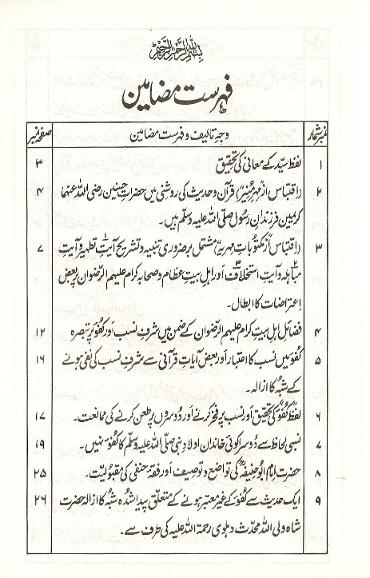 بسم اللہ الرحمٰن الرحیم
فہرست مضامین
نمبر شمار وجہِ تالیف و فہرست مضامین صفحہ نمبر
۱ لفظ سیّد کے معانی کی تحقیق ۳
۲ (اقتباس از مہرِ منیر) قرآن و حدیث کی روشنی میں حضراتِ حسنین رضی اللہ عنہما ۴
کریمین فرزندانِ رسول صلی اللہ علیہ وسلم ہیں۔
۳ (اقتباس از مکتوباتِ مہریہ) مشتمل بر ضروری تنبیہ و تشریح آیاتِ تطہیر آیتِ ۷
مباہلہ و آیتِ استخلاف اور اہلِ بیتِ عظام و صحابہ کرام علیہم الرضوان پر بعض
اعتراضات کا ابطال۔
۴ فضائل اہلِ بیتِ کرام علیہم الرضوان کے ضمن میں شرفِ نسب اور کفو پر تبصرہ ۱۲
۵ کفو میں نسب کا اعتبار اور بعض آیات قرآنی سے شرفِ نسب کی نفی ہونے ۱۶
کے شبہ کا ازالہ۔
۶ لفظ کفو کی تحقیق اور نسب پر فخر کرنے اور دوسروں پر طعن کرنے کی ممانعت۔ ۱۷
۷ نسبی لحاظ سے دوسرا کوئی خاندان اولادِ نبی صلی اللہ علیہ وسلم کا کفو نہیں۔ ۱۹
۸ حضرت امام ابوحنیفہ کی تواضع و توصیف اور فقہ حنفی کی مقبولیت۔ ۲۵
۹ ایک حدیث سے کفو کے غیر معتبر ہونے کے متعلق پیدا شدہ شبہ کا ازالہ حضرت ۲۶
شاہ ولی اللہ محدّث دہلوی رحمۃ اللہ علیہ کی طرف سے۔